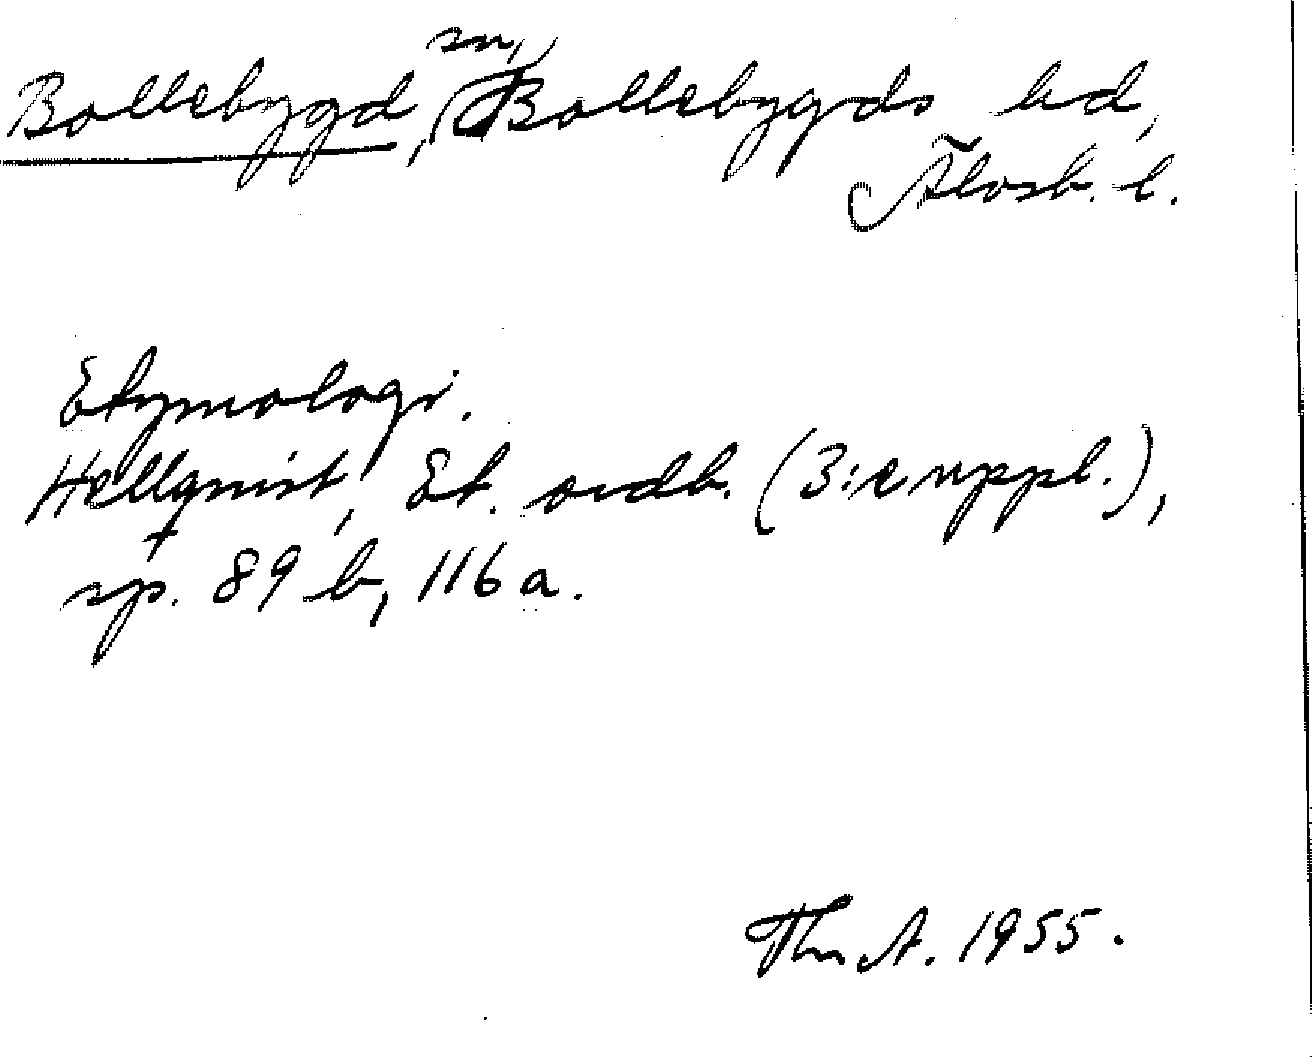 Bollebygd, sn, Bollebygds hd,
Älvsb. l.
Etymologi.
Hellquist, Et. ordb. (3:e uppl.),
sp. 89 b, 116 a.
Thn A. 1955.